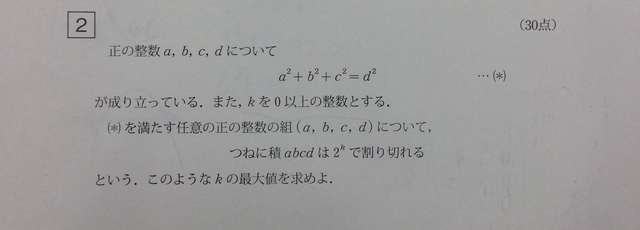 2 (30点)
正の整数 a, b, c, d について
a² + b² + c² = d² …(*)
が成り立っている. また, k を 0 以上の整数とする.
(*)を満たす任意の正の整数の組 (a, b, c, d) について,
つねに積 abcd は 2ᵏ で割り切れる
という. このような k の最大値を求めよ.